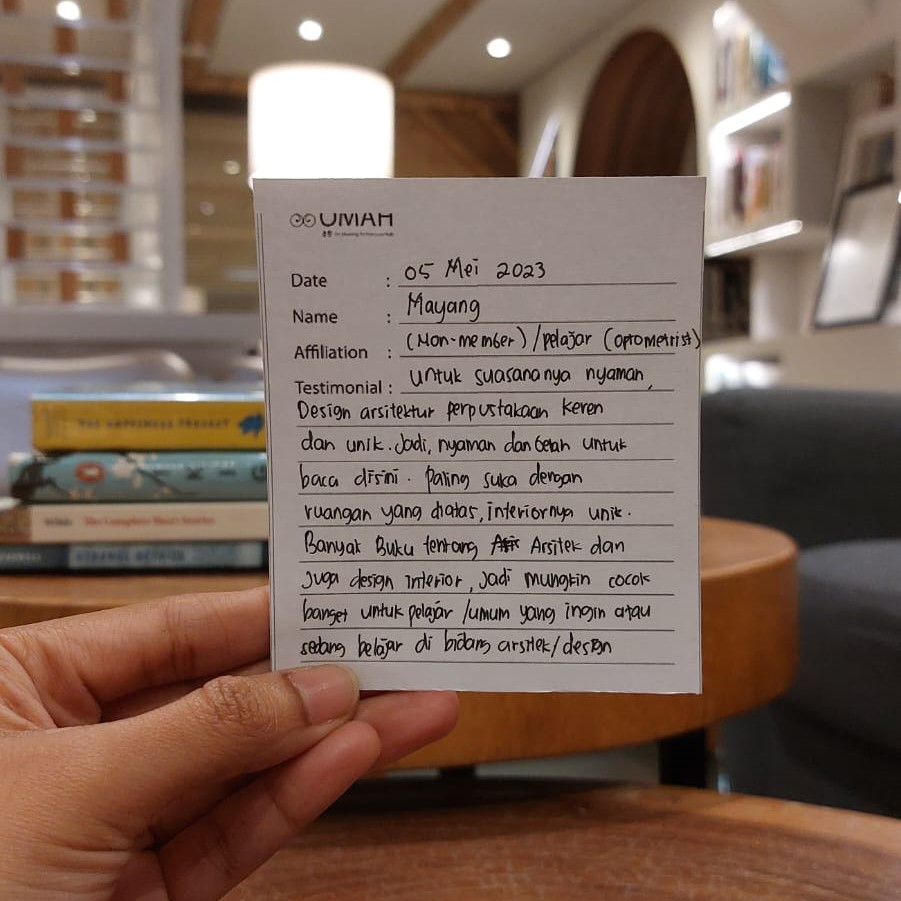 OMAH
Date : 05 Mei 2023
Name : Mayang
Affiliation : (Non-member) / pelajar (optometrist)
Testimonial : untuk suasananya nyaman,
Design arsitektur perpustakaan keren
dan unik. Jadi, nyaman dan betah untuk
baca disini. Paling suka dengan
ruangan yang diatas, interiornya unik.
Banyak Buku tentang Arsitek dan
Juga design interior, Jadi mungkin cocok
banget untuk pelajar /umum yang ingin atau
sedang belajar di bidang arsitek/design
THE HAPPINESS PROJECT
The Complete Short Stories